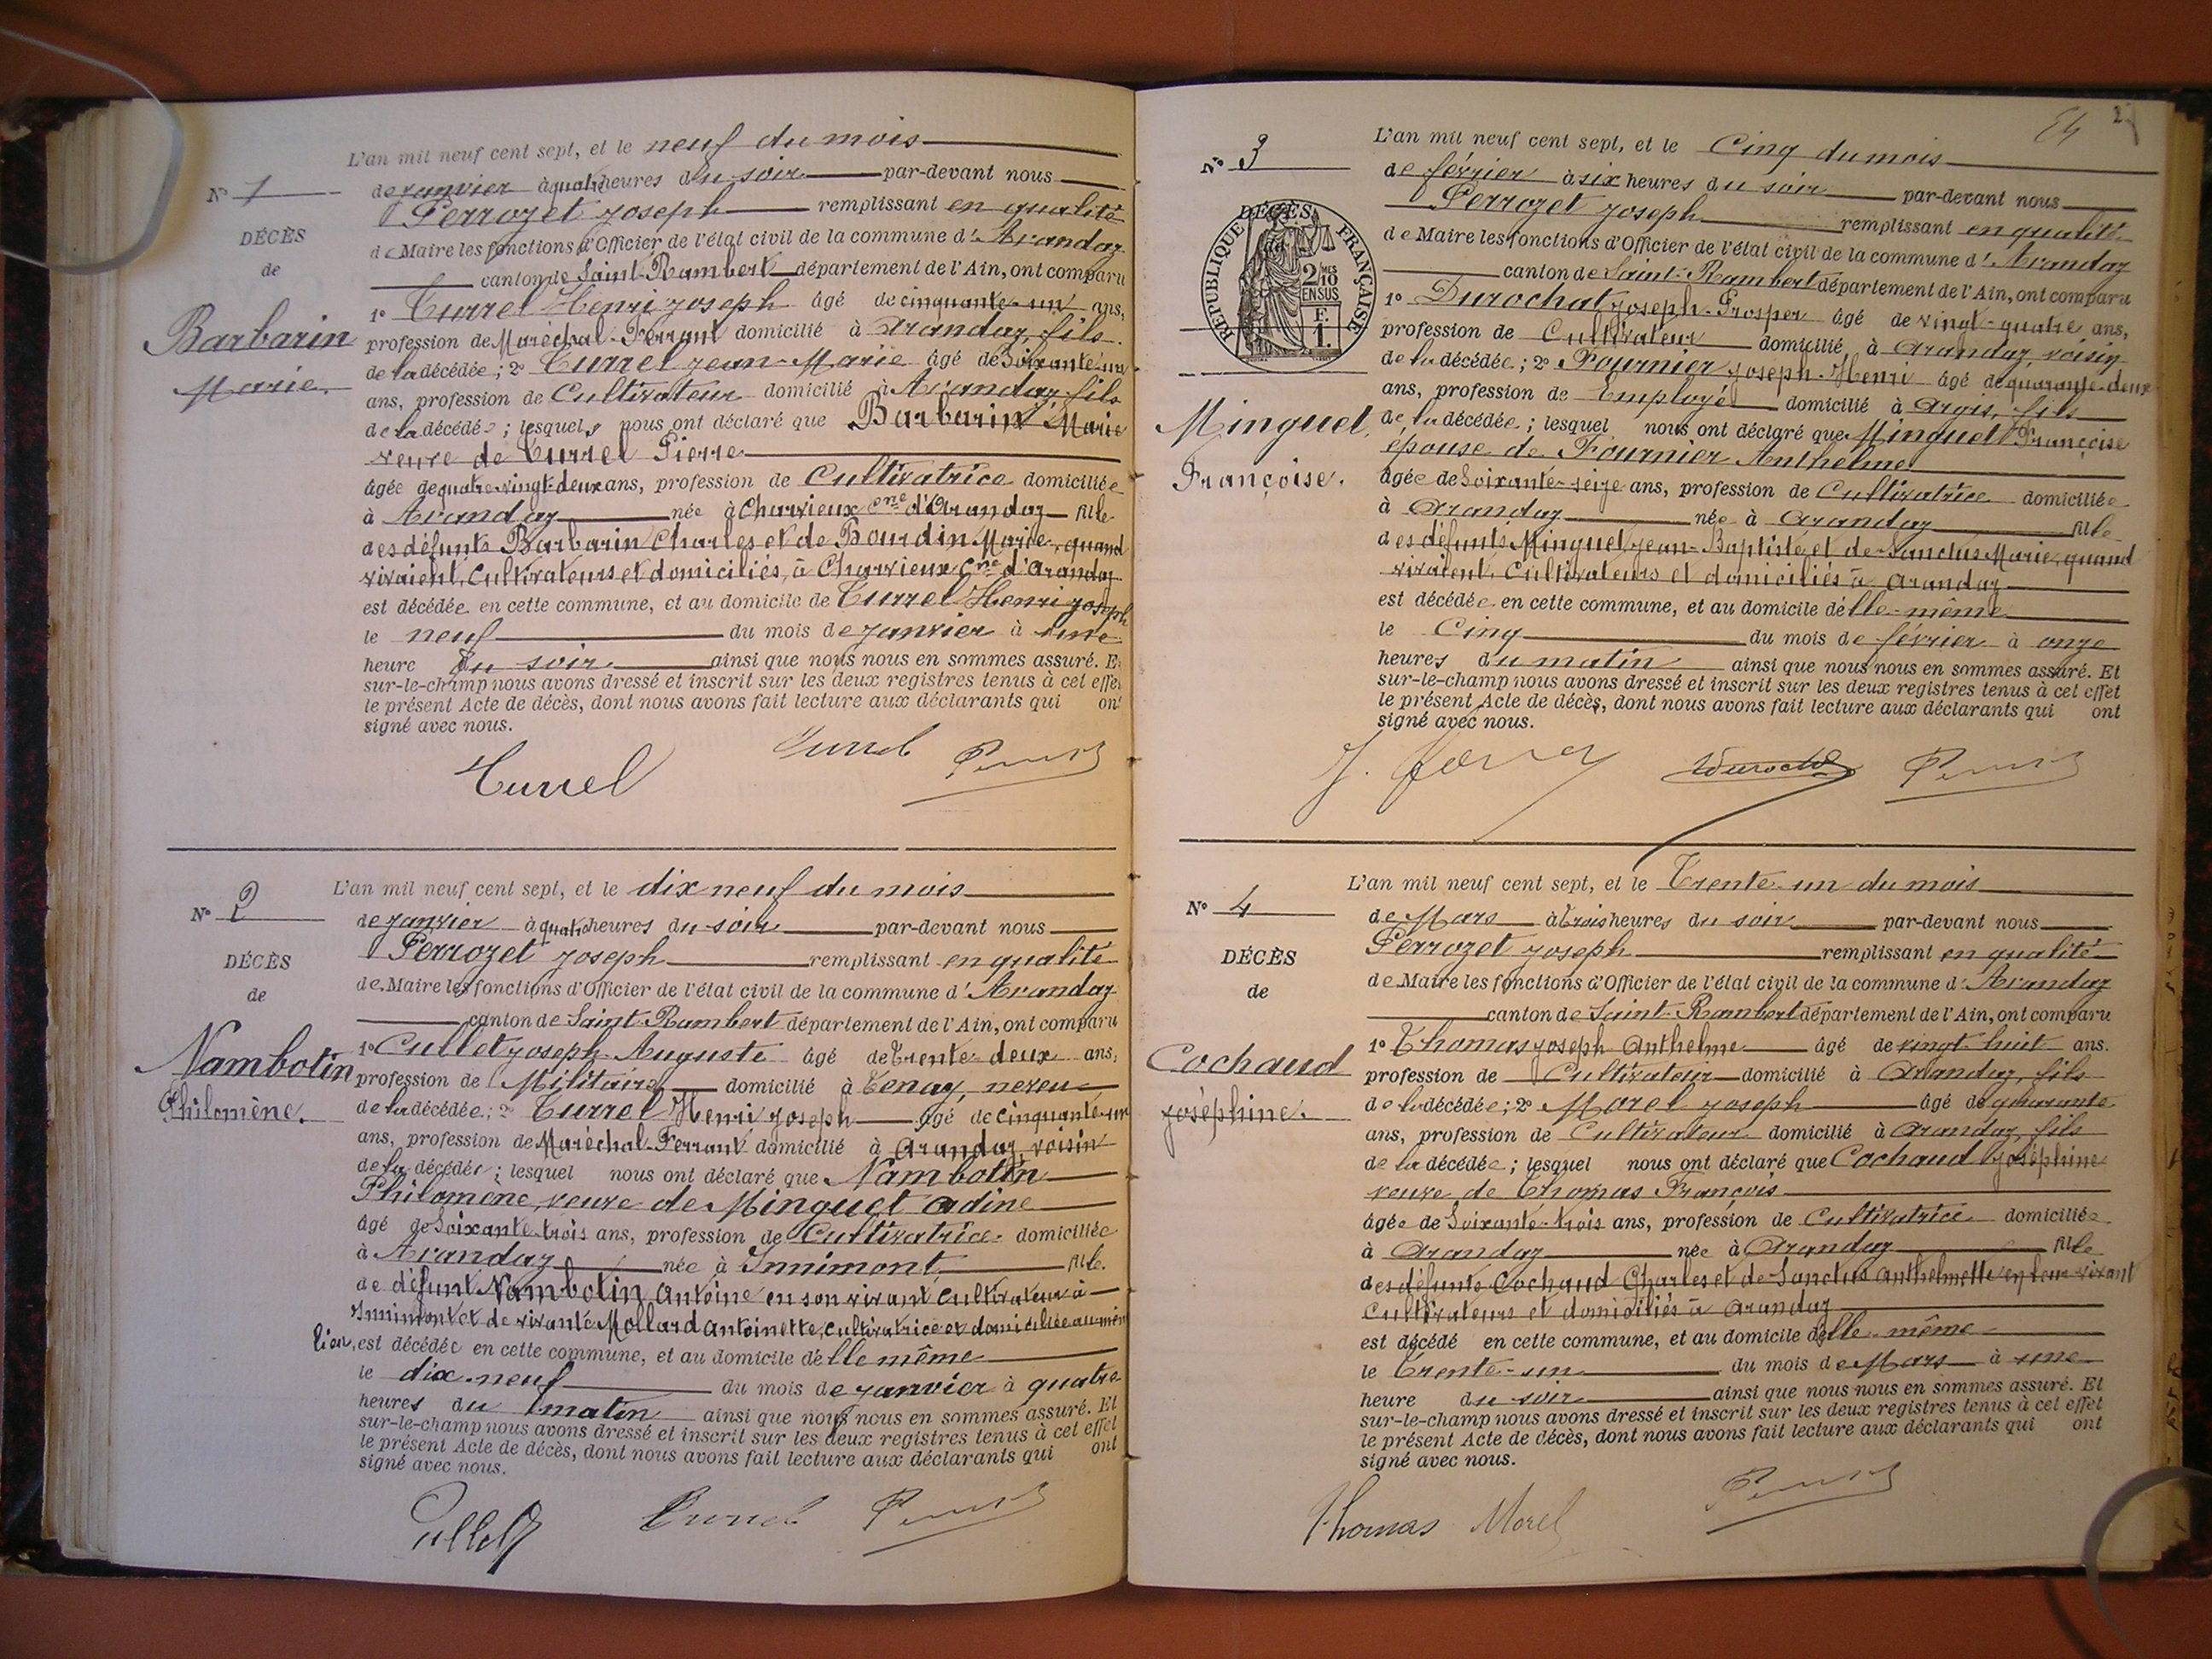 L'an mil neuf cent sept, et le neuf du mois
N° 1
de janvier à quatre heures du soir par-devant nous
Perrozet Joseph remplissant en qualité
DÉCÈS
de Maire les fonctions d'Officier de l'état civil de la commune d'Arandaz
de
canton de Saint-Rambert département de l'Ain, ont comparu
1° Turrel Henri Joseph âgé de cinquante-un ans,
Barbarin
profession de Maréchal-Ferrant domicilié à Arandaz, fils
de la décédée; 2° Turrel Jean-Marie âgé de Soixante-un
Marie.
ans, profession de Cultivateur domicilié à Arandaz, fils
de la décédée; lesquels nous ont déclaré que Barbarin Marie
veuve de Turrel Pierre
âgée de quatre-vingt-deux ans, profession de Cultivatrice domiciliée
à Arandaz née à Charvieux Cne d'Arandaz fille
des défunts Barbarin Charles et de Bourdin Marie, quand
vivaient, Cultivateurs et domiciliés, à Charvieux Cne d'Arandaz
est décédée en cette commune, et au domicile de Turrel Henri Joseph
le neuf du mois de janvier à une
heure du soir ainsi que nous nous en sommes assuré. Et
sur-le-champ nous avons dressé et inscrit sur les deux registres tenus à cet effet
le présent Acte de décès, dont nous avons fait lecture aux déclarants qui ont
signé avec nous.
Turrel Turrel
L'an mil neuf cent sept, et le dix neuf du mois
N° 2
de janvier à quatre heures du soir par-devant nous
Perrozet Joseph remplissant en qualité
DÉCÈS
de Maire les fonctions d'Officier de l'état civil de la commune d'Arandaz
de
canton de Saint-Rambert département de l'Ain, ont comparu
1° Cullet Joseph-Auguste âgé de trente-deux ans,
Nambotin
profession de Militaire domicilié à Tenay, neveu
Philomène.
de la décédée; 2° Turrel Henri Joseph âgé de cinquante-un
ans, profession de Maréchal-Ferrant domicilié à Arandaz, voisin
de la décédée; lesquel nous ont déclaré que Nambotin
Philomène, veuve de Minguet Adine
âgé de Soixante-trois ans, profession de Cultivatrice domiciliée
à Arandaz née à Innimont fille
de défunt Nambotin Antoine en son vivant Cultivateur à
Innimont et de vivante Mollard Antoinette, Cultivatrice et domiciliée au même
lieu, est décédée en cette commune, et au domicile d'elle même
le dix-neuf du mois de janvier à quatre
heures du matin ainsi que nous nous en sommes assuré. Et
sur-le-champ nous avons dressé et inscrit sur les deux registres tenus à cet effet
le présent Acte de décès, dont nous avons fait lecture aux déclarants qui ont
signé avec nous.
Cullet Turrel
2
L'an mil neuf cent sept, et le Cinq du mois
N° 3
de février à six heures du soir par-devant nous
Perrozet Joseph remplissant en qualité
DÉCÈS
de
RÉPUBLIQUE FRANÇAISE
2/10 MES
EN SUS
F.
1.
de Maire les fonctions d'Officier de l'état civil de la commune d'Arandaz
canton de Saint-Rambert département de l'Ain, ont comparu
1° Durochat Joseph-Prosper âgé de vingt-quatre ans,
profession de Cultivateur domicilié à Arandaz, voisin
de la décédée; 2° Fournier Joseph-Henri âgé de quarante-deux
ans, profession de Employé domicilié à Argis, fils
Minguet
de la décédée; lesquel nous ont déclaré que Minguet Françoise
épouse de Fournier Anthelme
Françoise.
âgée de Soixante-seize ans, profession de Cultivatrice domiciliée
à Arandaz née à Arandaz fille
des défunts Minguet Jean-Baptiste, et de Sanctus Marie, quand
vivaient, Cultivateurs et domiciliés à Arandaz
est décédée en cette commune, et au domicile d'elle-même
le Cinq du mois de février à onze
heures du matin ainsi que nous nous en sommes assuré. Et
sur-le-champ nous avons dressé et inscrit sur les deux registres tenus à cet effet
le présent Acte de décès, dont nous avons fait lecture aux déclarants qui ont
signé avec nous.
Durochat
L'an mil neuf cent sept, et le Trente-un du mois
N° 4
de Mars à trois heures du soir par-devant nous
Perrozet Joseph remplissant en qualité
DÉCÈS
de Maire les fonctions d'Officier de l'état civil de la commune d'Arandaz
de
canton de Saint-Rambert département de l'Ain, ont comparu
1° Thomas Joseph Anthelme âgé de vingt-huit ans.
Cochaud
profession de Cultivateur domicilié à Arandaz, fils
Joséphine.
de la décédée; 2° Morel Joseph âgé de quarante
ans, profession de Cultivateur domicilié à Arandaz, fils
de la décédée; lesquel nous ont déclaré que Cochaud Joséphine
veuve de Thomas François
âgée de Soixante-trois ans, profession de Cultivatrice domiciliée
à Arandaz née à Arandaz fille
des défunts Cochaud Charles et de Sanctus Anthelmette en leur vivant
Cultivateurs et domiciliés à Arandaz
est décédé en cette commune, et au domicile d'elle-même
le Trente-un du mois de Mars à une
heure du soir ainsi que nous nous en sommes assuré. Et
sur-le-champ nous avons dressé et inscrit sur les deux registres tenus à cet effet
le présent Acte de décès, dont nous avons fait lecture aux déclarants qui ont
signé avec nous.
Thomas Morel